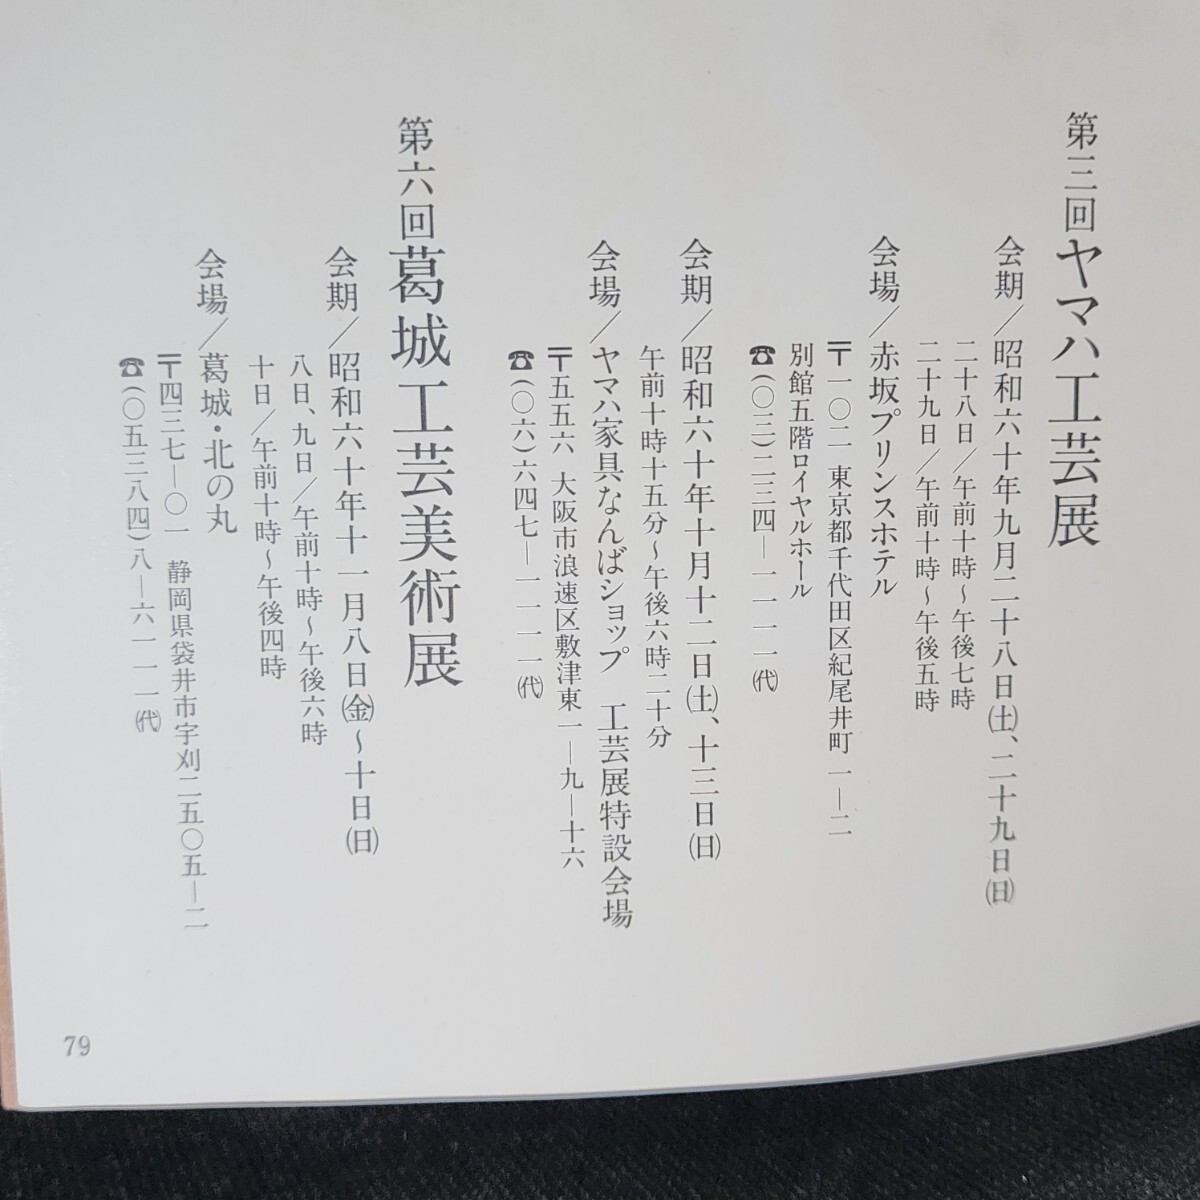 第三回ヤマハ工芸展
会期／昭和六十年九月二十八日㈯、二十九日㈰
二十八日／午前十時～午後七時
二十九日／午前十時～午後五時
会場／赤坂プリンスホテル
〒一〇二 東京都千代田区紀尾井町一―二
別館五階ロイヤルホール
☎(〇三)二三四―一一一一㈹
会期／昭和六十年十月十二日㈯、十三日㈰
午前十時十五分～午後六時二十分
会場／ヤマハ家具なんばショップ 工芸展特設会場
〒五五六 大阪市浪速区敷津東一―九―十六
☎(〇六)六四七―一一一一㈹
第六回葛城工芸美術展
会期／昭和六十年十一月八日㈮～十日㈰
八日、九日／午前十時～午後六時
十日／午前十時～午後四時
会場／葛城・北の丸
〒四三七―〇一 静岡県袋井市宇刈二五〇五―二
☎(〇五三八四)八―六一一一㈹
79